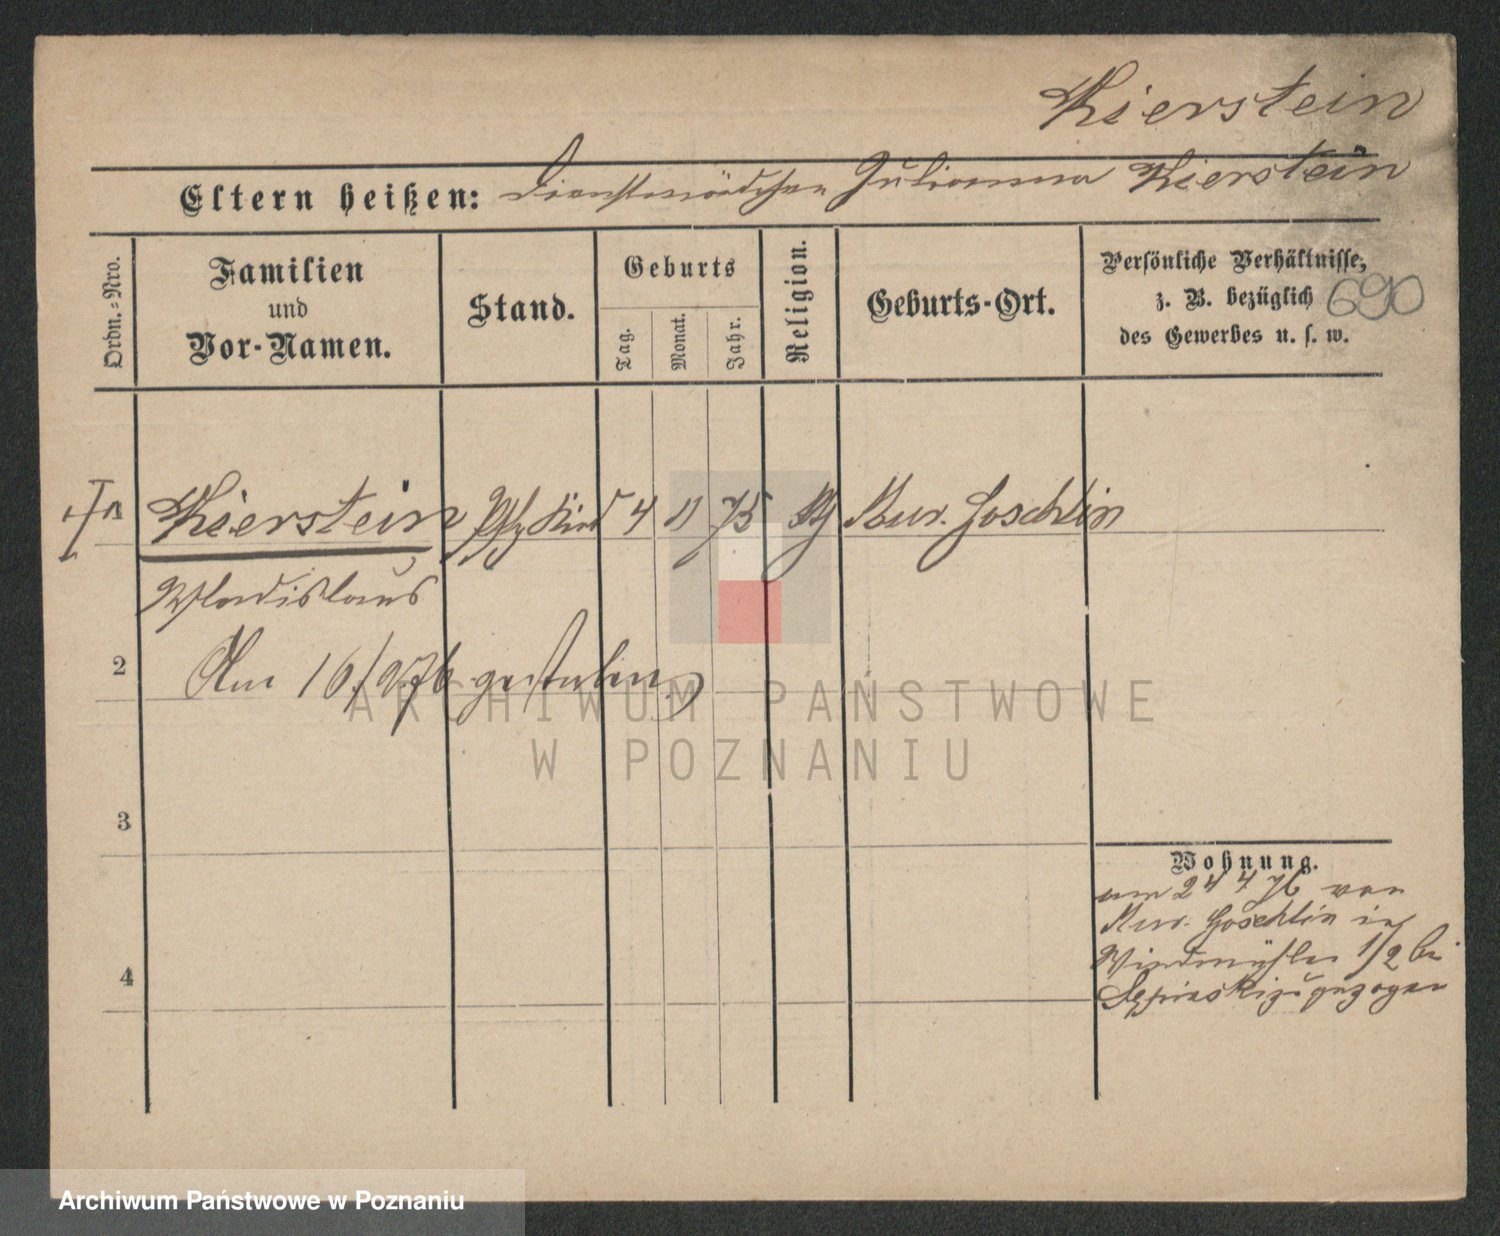 Kierstein
Eltern heißen: Dienstmädchen Julianna Kierstein
Ordn.-Nro.
Familien
und
Vor-Namen.
Stand.
Geburts
Tag.
Monat.
Jahr.
Religion.
Geburts-Ort.
Persönliche Verhältnisse,
z. B. bezüglich
des Gewerbes u. s. w.
690
1 Kierstein Kind 4 11 75 Goschlin
Wladislaus
2 Am 16/9 76 gestorben
3
4
Wohnung.
am 24 4 76 von
Mur. Goschlin in
Windmühlen 1/2 bei
zugezogen
ARCHIWUM PAŃSTWOWE
W POZNANIU
Archiwum Państwowe w Poznaniu